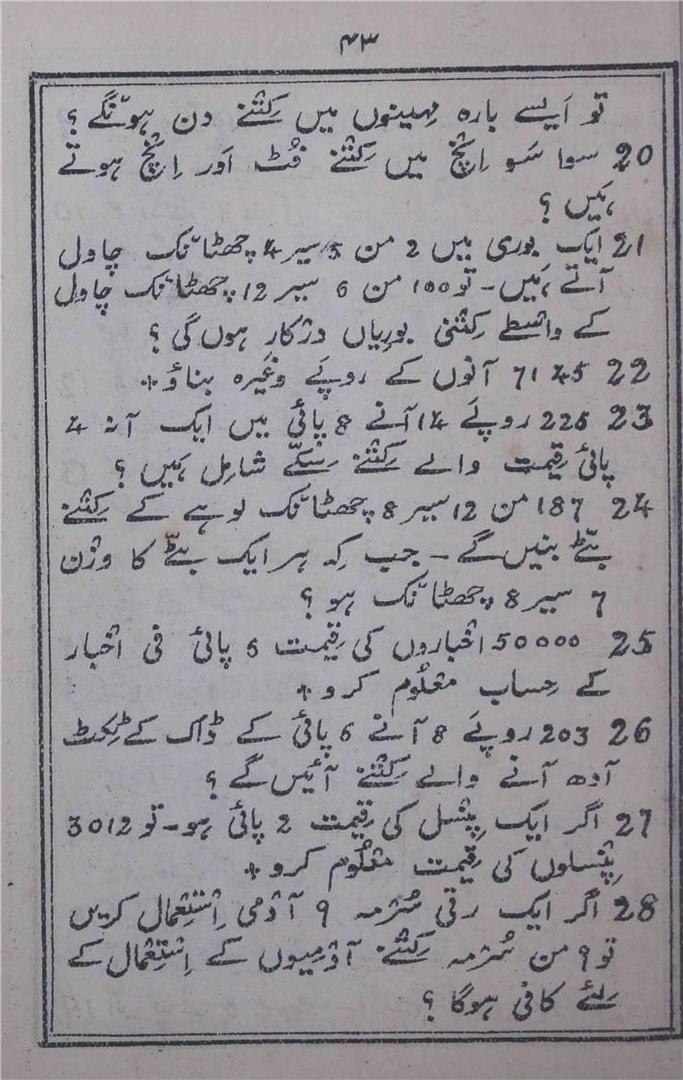 ۴۳
تو اَیسے بارہ مہینوں میں کِتنے دن ہونگے ؟
20 سوا سَو اِنچ میں کِتنے فُٹ اَور اِنچ ہوتے
ہَیں ؟
21 ایک بوری میں 2 من 5 سیر 4 چھٹانک چاول
آتے ہَیں - تو 100 من 6 سیر 12 چھٹانک چاول
کے واسطے کِتنی بوریاں درکار ہوں گی ؟
22 7145 آنوں کے روپَے وغَیرہ بناؤ +
23 226 روپَے 14 آنے 8 پائی میں ایک آنہ 4
پائی قِیمت والے کِتنے سِکّے شامِل ہَیں ؟
24 187 من 12 سیر 8 چھٹانک لوہے کے کِتنے
بٹّے بنیں گے - جب کِہ ہر ایک بٹّے کا وزن
7 سیر 8 چھٹانک ہو ؟
25 50000 اخباروں کی قِیمت 6 پائی فی اخبار
کے حِساب معلُوم کرو +
26 203 روپَے 8 آنے 6 پائی کے ڈاک کے ٹِکٹ
آدھ آنے والے کِتنے آئیں گے ؟
27 اگر ایک پِنسل کی قِیمت 2 پائی ہو - تو 3012
پِنسلوں کی قِیمت معلُوم کرو +
28 اگر ایک رتی سُرمہ 9 آدمی اِستِعمال کریں
تو 9 من سُرمہ کِتنے آدمیوں کے اِستِعمال کے
لِئے کافی ہوگا ؟